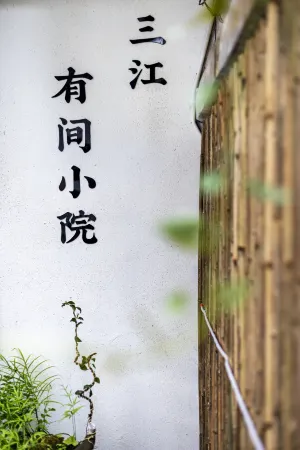 三江
有间小院